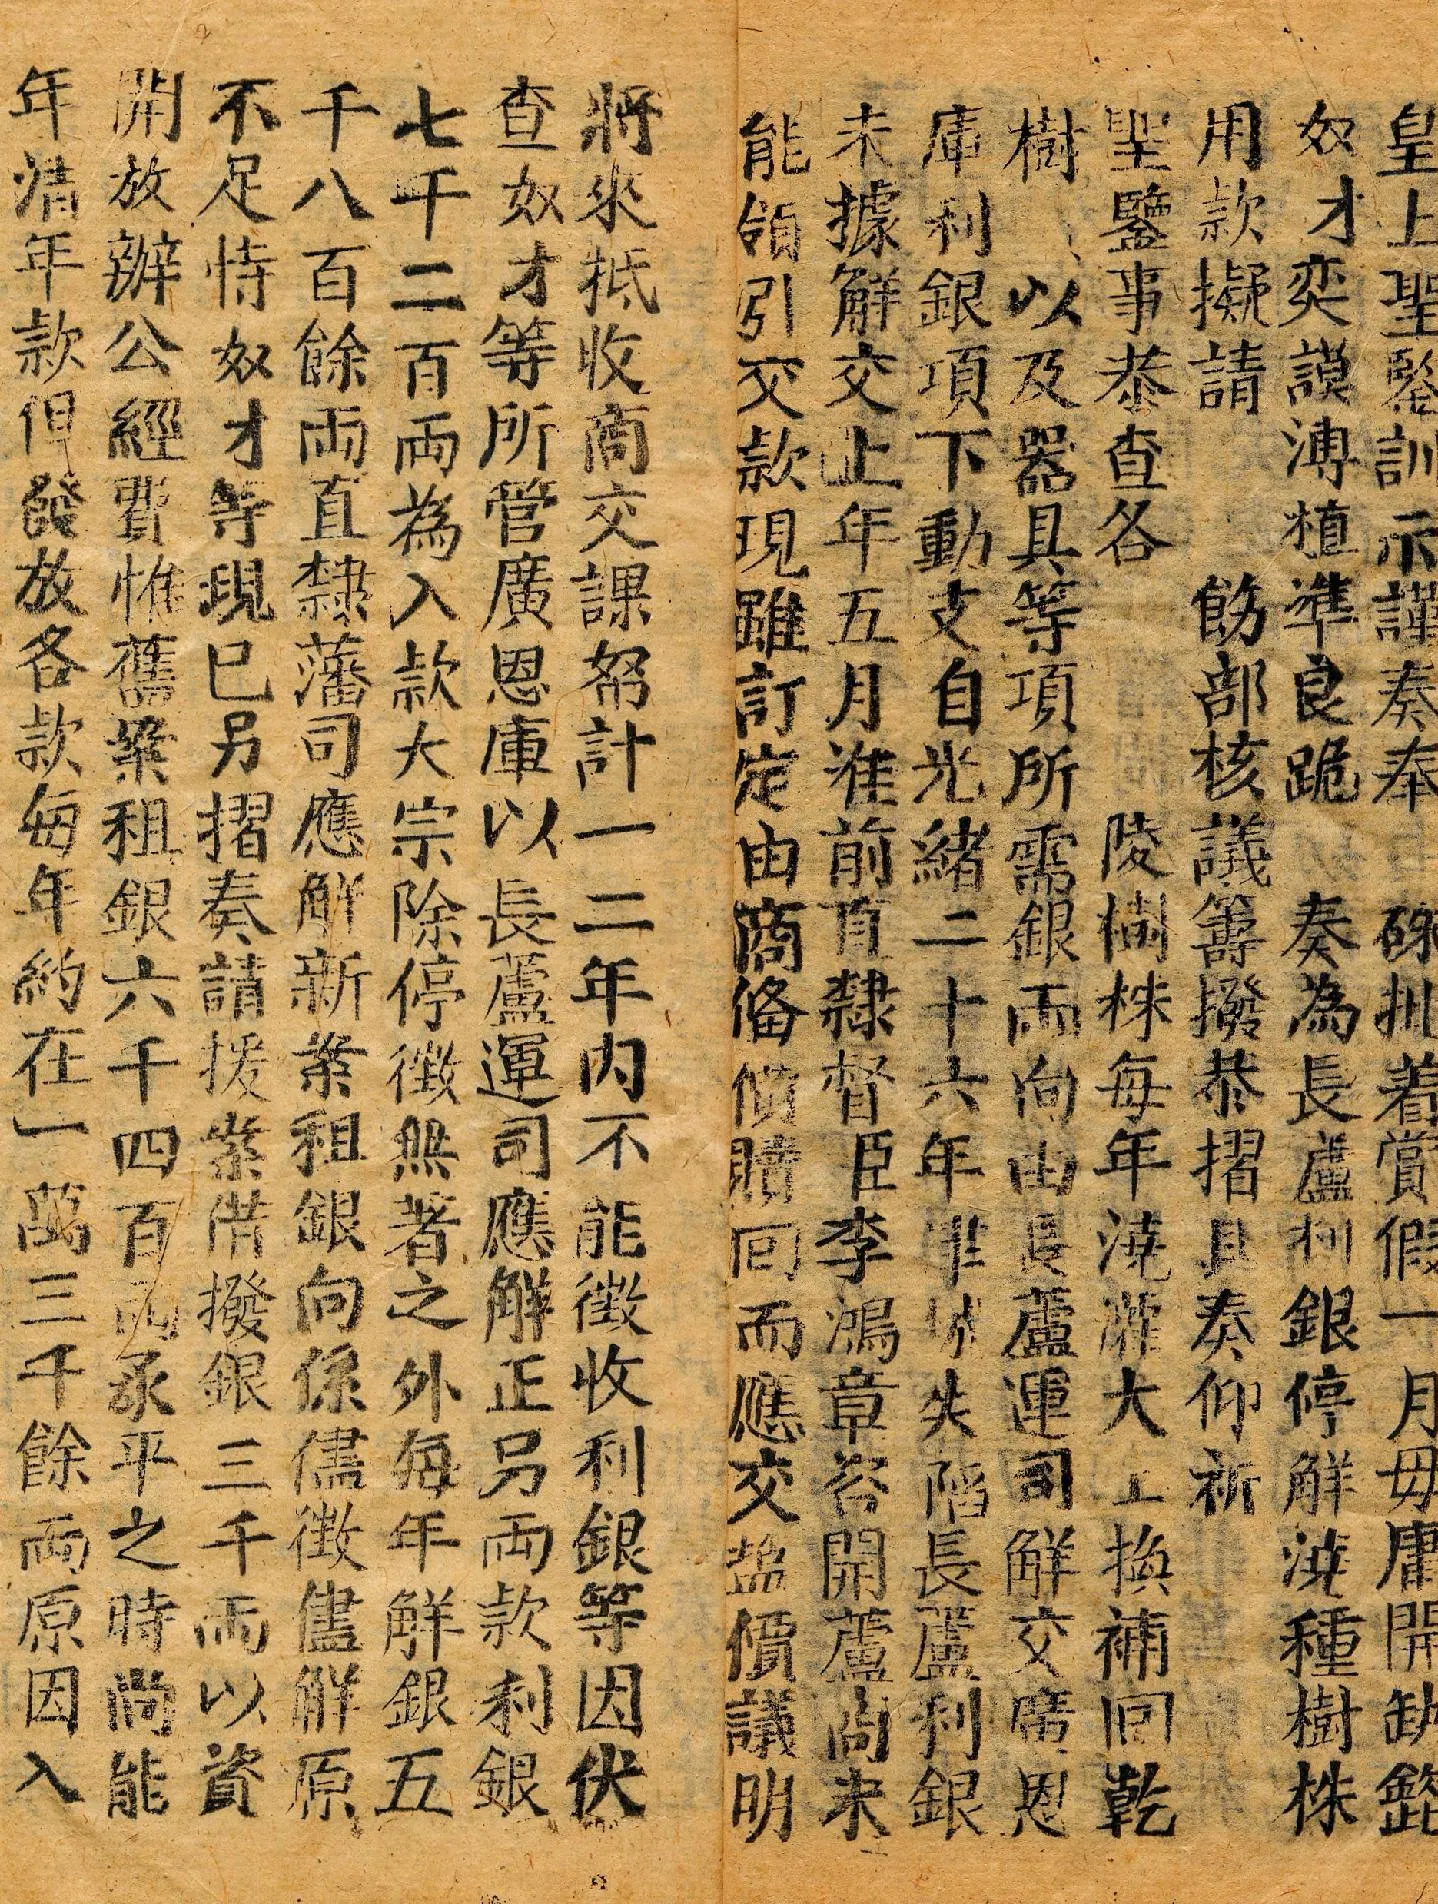 皇上聖鑒訓示謹奏奉 硃批着賞假一月毋庸開缺欽
奴才奕謨溥植準良跪 奏為長蘆利銀停解澆種樹株
用款擬請 飭部核議籌撥恭摺具奏仰祈
聖鑒事恭查各 陵樹株每年澆灌大工換補回乾
樹 以及器具等項所需銀兩向由長蘆運司解交廣恩
庫利銀項下動支自光緒二十六年津城失陷長蘆利銀
未據解交上年五月准前直隸督臣李鴻章咨開蘆商未
能領引交款現雖訂定由商備價贖回而應交鹽價議明
將來抵收商交課帑計一二年內不能徵收利銀等因伏
查奴才等所管廣恩庫以長蘆運司應解正另兩款利銀
七千二百兩為入款大宗除停徵無著之外每年解銀五
千八百餘兩直隸藩司應解新案租銀向係儘徵儘解原
不足恃奴才等現已另摺奏請援案借撥銀三千兩以資
開放辦公經費惟舊案租銀六千四百兩承平之時尚能
年清年款但發放各款每年約在一萬三千餘兩原因入